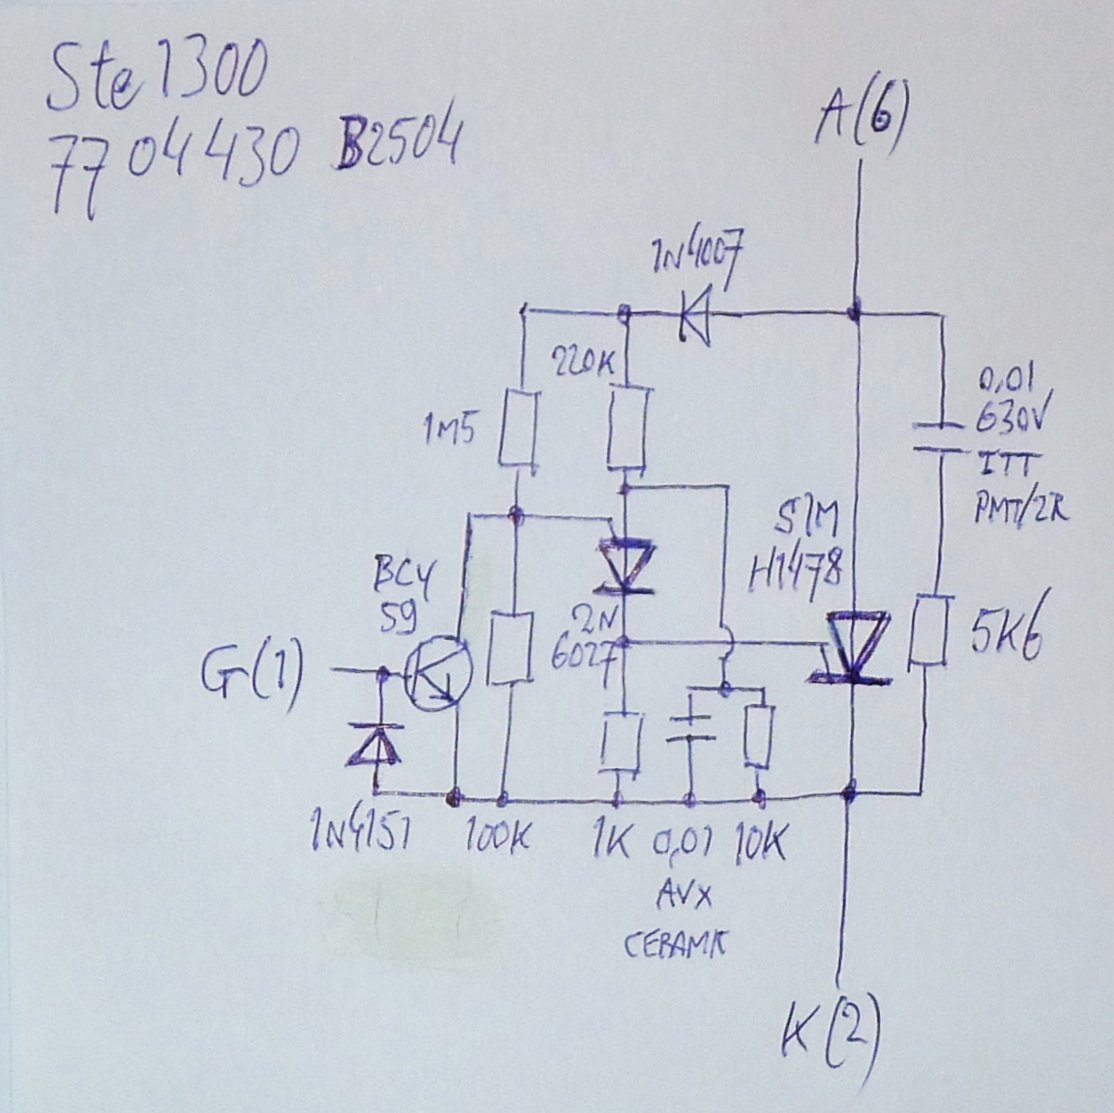 Ste 1300
7704430 B2504
A(6)
1N4007
220K
1M5
0,01
630V
ITT
PMT/2R
SIM
H1478
BCY
59
2N
6027
5K6
G(1)
1N4151
100K
1K
0,01
10K
AVX
CERAMIK
K(2)